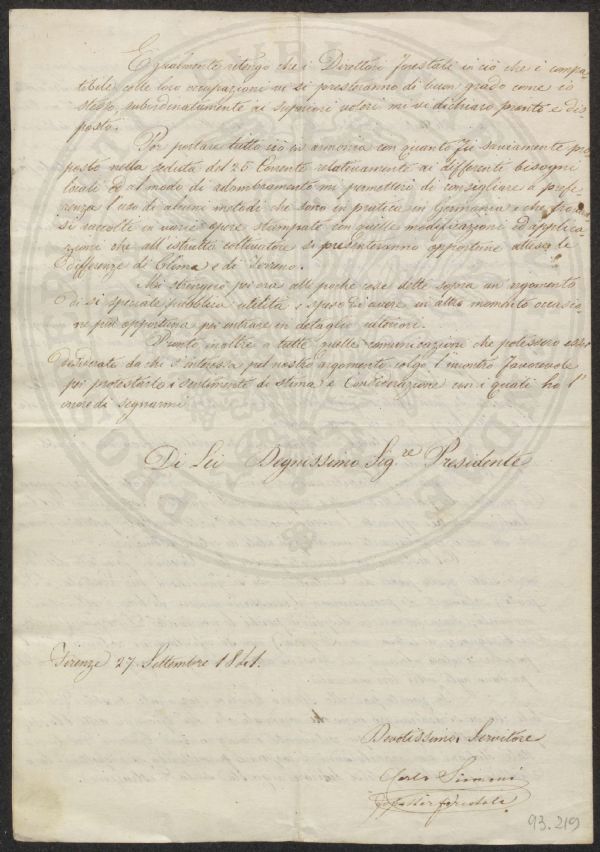 Egualmente ritengo che i Direttori forestali in ciò che è compa-
tibile colle loro occupazioni vi si presteranno di buon grado come io
stesso subordinatamente ai superiori voleri mi vi dichiaro pronto e dis-
posto.
Per portare tutto ciò in armonia con quanto fù saviamente pro-
posto nella seduta del 25 Corrente relativamente ai differenti bisogni
locali ed al modo di adombramento mi permetterei di consigliare a prefe-
renza l'uso di alcuni metodi che sono in pratica in Germania e che
si raccolte in varie opere stampate con quelle modificazioni ed applica-
zioni che all'istruito coltivatore si presenteranno opportune attese le
differenze di Clima e di Terreno.
Mi stringio per ora alle poche cose dette sopra un argomento
di sì speciale pubblica utilità e spero di avere in altro momento occasio-
ne più opportuna per entrare in detaglio ulteriori.
Pronto inoltre a tutte quelle comunicazioni che potessero esser
desiderate da chi s'interessa pel nostro argomento colgo l'incontro favorevole
per protestarle i sentimenti di stima e Considerazione con i quali ho l'
onore di segnarmi
Di Lei Degnissimo Sig.re Presidente
Firenze 27 Settembre 1841.
Devotissimo Servitore
Carlo Simoni
forestale
93.219